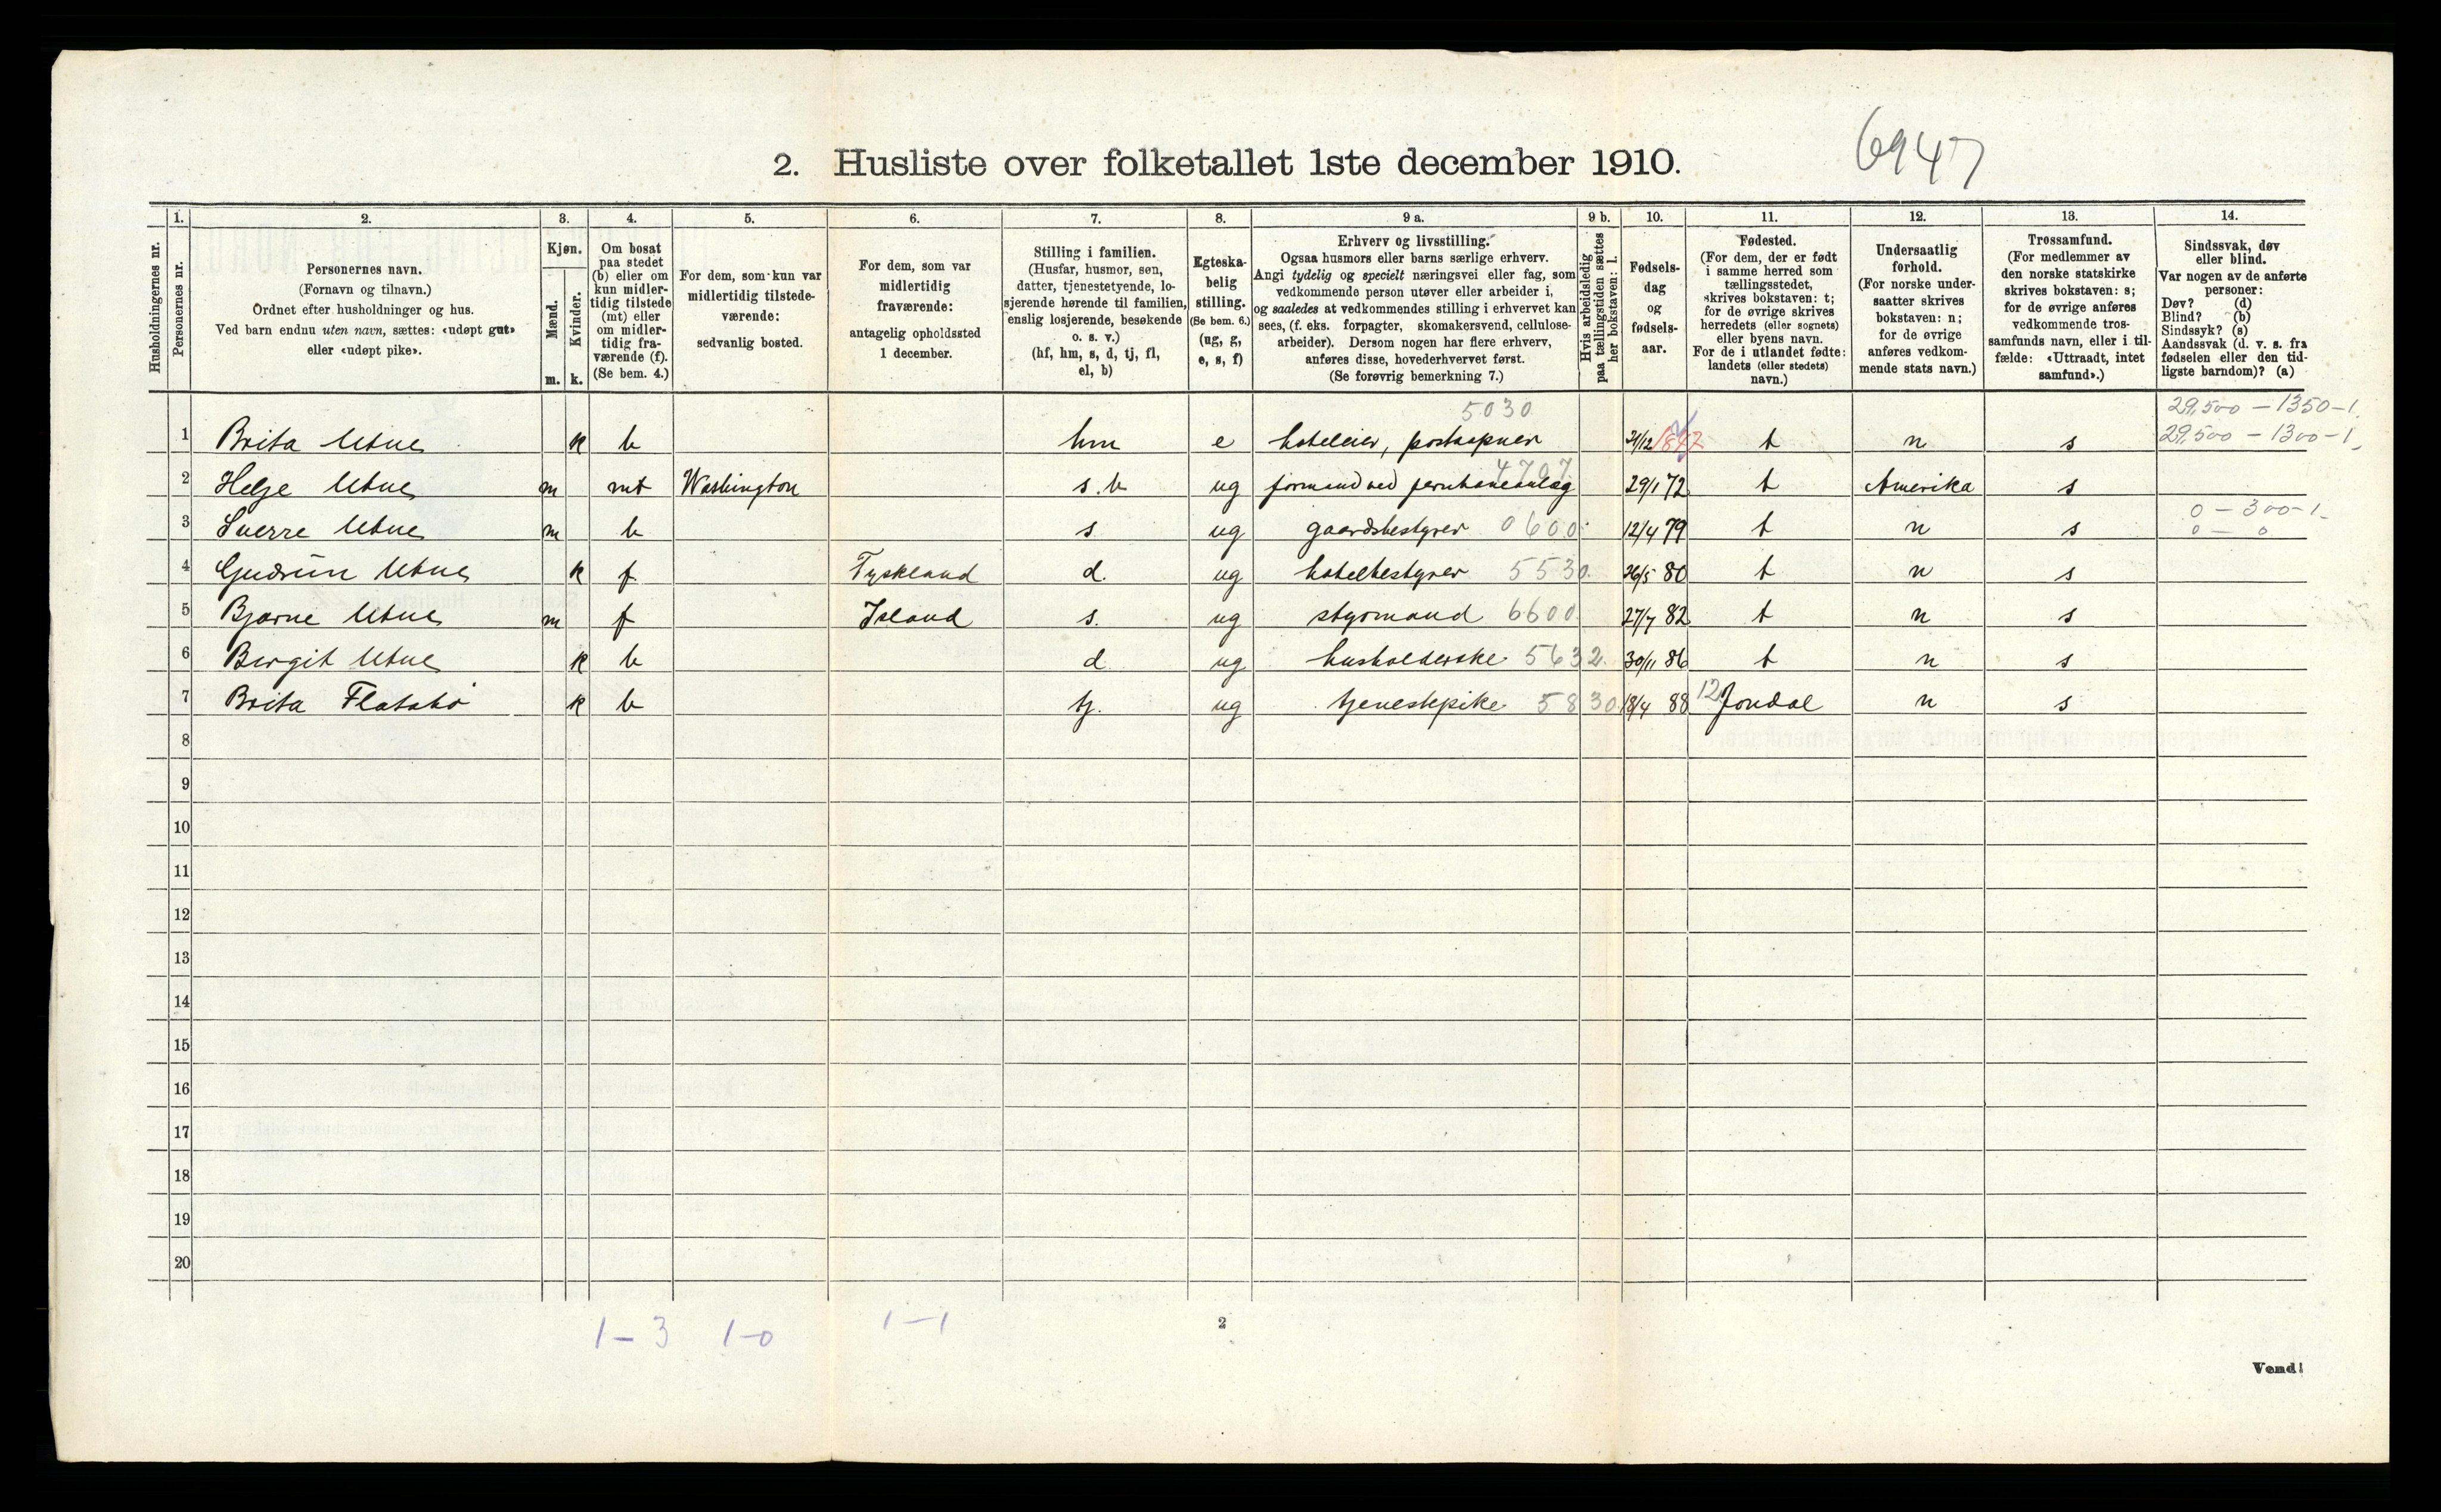 6947
2. Husliste over folketallet 1ste december 1910.
Husholdningernes nr.
1. Personernes nr.
2. Personernes navn.
(Fornavn og tilnavn.)
Ordnet efter husholdninger og hus.
Ved barn endnu uten navn, sættes: «udøpt gut»
eller «udøpt pike».
3. Kjøn.
Mænd. m.
Kvinder. k.
4. Om bosat
paa stedet
(b) eller om
kun midler-
tidig tilstede
(mt) eller
om midler-
tidig fra-
værende (f).
(Se bem. 4.)
5. For dem, som kun var
midlertidig tilstede-
værende:
sedvanlig bosted.
6. For dem, som var
midlertidig
fraværende:
antagelig opholdssted
1 december.
7. Stilling i familien.
(Husfar, husmor, søn,
datter, tjenestetyende, lo-
sjerende hørende til familien,
enslig losjerende, besøkende
o. s. v.)
(hf, hm, s, d, tj, fl,
el, b)
8. Egteska-
belig
stilling.
(Se bem. 6.)
(ug, g,
e, s, f)
9 a. Erhverv og livsstilling.
Ogsaa husmors eller barns særlige erhverv.
Angi tydelig og specielt næringsvei eller fag, som
vedkommende person utøver eller arbeider i,
og saaledes at vedkommendes stilling i erhvervet kan
sees, (f. eks. forpagter, skomakersvend, cellulose-
arbeider). Dersom nogen har flere erhverv,
anføres disse, hovederhvervet først.
(Se forøvrig bemerkning 7.)
9 b. Hvis arbeidsledig
paa tællingstiden sættes
her bokstaven: l.
10. Fødsels-
dag
og
fødsels-
aar.
11. Fødested.
(For dem, der er født
i samme herred som
tællingsstedet,
skrives bokstaven: t;
for de øvrige skrives
herredets (eller sognets)
eller byens navn.
For de i utlandet fødte:
landets (eller stedets)
navn.)
12. Undersaatlig
forhold.
(For norske under-
saatter skrives
bokstaven: n;
for de øvrige
anføres vedkom-
mende stats navn.)
13. Trossamfund.
(For medlemmer av
den norske statskirke
skrives bokstaven: s;
for de øvrige anføres
vedkommende tros-
samfunds navn, eller i til-
fælde: «Uttraadt, intet
samfund».)
14. Sindssvak, døv
eller blind.
Var nogen av de anførte
personer:
Døv? (d)
Blind? (b)
Sindssyk? (s)
Aandssvak (d. v. s. fra
fødselen eller den tid-
ligste barndom)? (a)
5030 29,500 – 1350–1.
1 Brita Utne k b hm e hoteleier, postaapner 21/12 1842 t n s 29,500 – 1300–1.
2 Helge Utne m mt Washington s. b ug formand ved jernbaneanlæg 4707 29/1 72 t Amerika s
3 Sverre Utne m b s. ug gaardsbestyrer 0600 12/4 79 t n s 0 – 300–1. 0 – 0
4 Gudrun Utne k f Tyskland d. ug hotelbestyrer 5530. 26/5 80 t n s
5 Bjarne Utne m f Island s. ug styrmand 6600 27/7 82 t n s
6 Bergit Utne k b d ug husholderske 5632. 30/11 86 t n s
7 Brita Flatabø k b tj. ug tjenestepike 5830 18/4 88 12 Jondal n s
8
9
10
11
12
13
14
15
16
17
18
19
20
1–3 1–0 1–1
2
Vend!